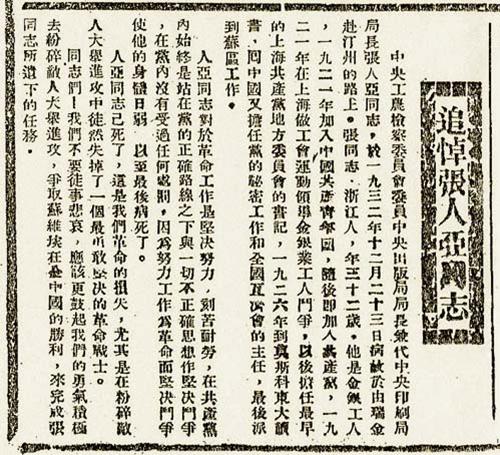 追悼張人亞同志
中央工農檢察委員會委員中央出版局局長兼代中央印刷局
局長張人亞同志,於一九三二年十二月二十三日病故於由瑞金
赴汀州的路上。張同志,浙江人,年三十二歲。他是金銀工人
,一九二一年加入中國共產青年團,隨後即加入共產黨,一九
二一年在上海做工會運動領導金銀業工人鬥爭,以後擔任最早
的上海共產黨地方委員會的書記,一九二六年到莫斯科東大讀
書,回中國又擔任黨的秘密工作和全國互濟會的主任,最後派
到蘇區工作。
人亞同志對於革命工作是堅決努力,刻苦耐勞,在共產黨
內始終是站在黨的正確路線之下與一切不正確思想作堅決鬥爭
,在黨內沒有受過任何處罰,因為努力工作為革命而堅決鬥爭
使他的身體日弱 以至最後病死了。
人亞同志已死了,這是我們革命的損失,尤其是在粉碎敵
人大舉進攻中徒然失掉了一個最勇敢堅決的革命戰士。
同志們!我們不要徒事悲哀,應該更鼓起我們的勇氣積極
去粉碎敵人大舉進攻,爭取蘇維埃在全中國的勝利,來完成張
同志所遺下的任務。